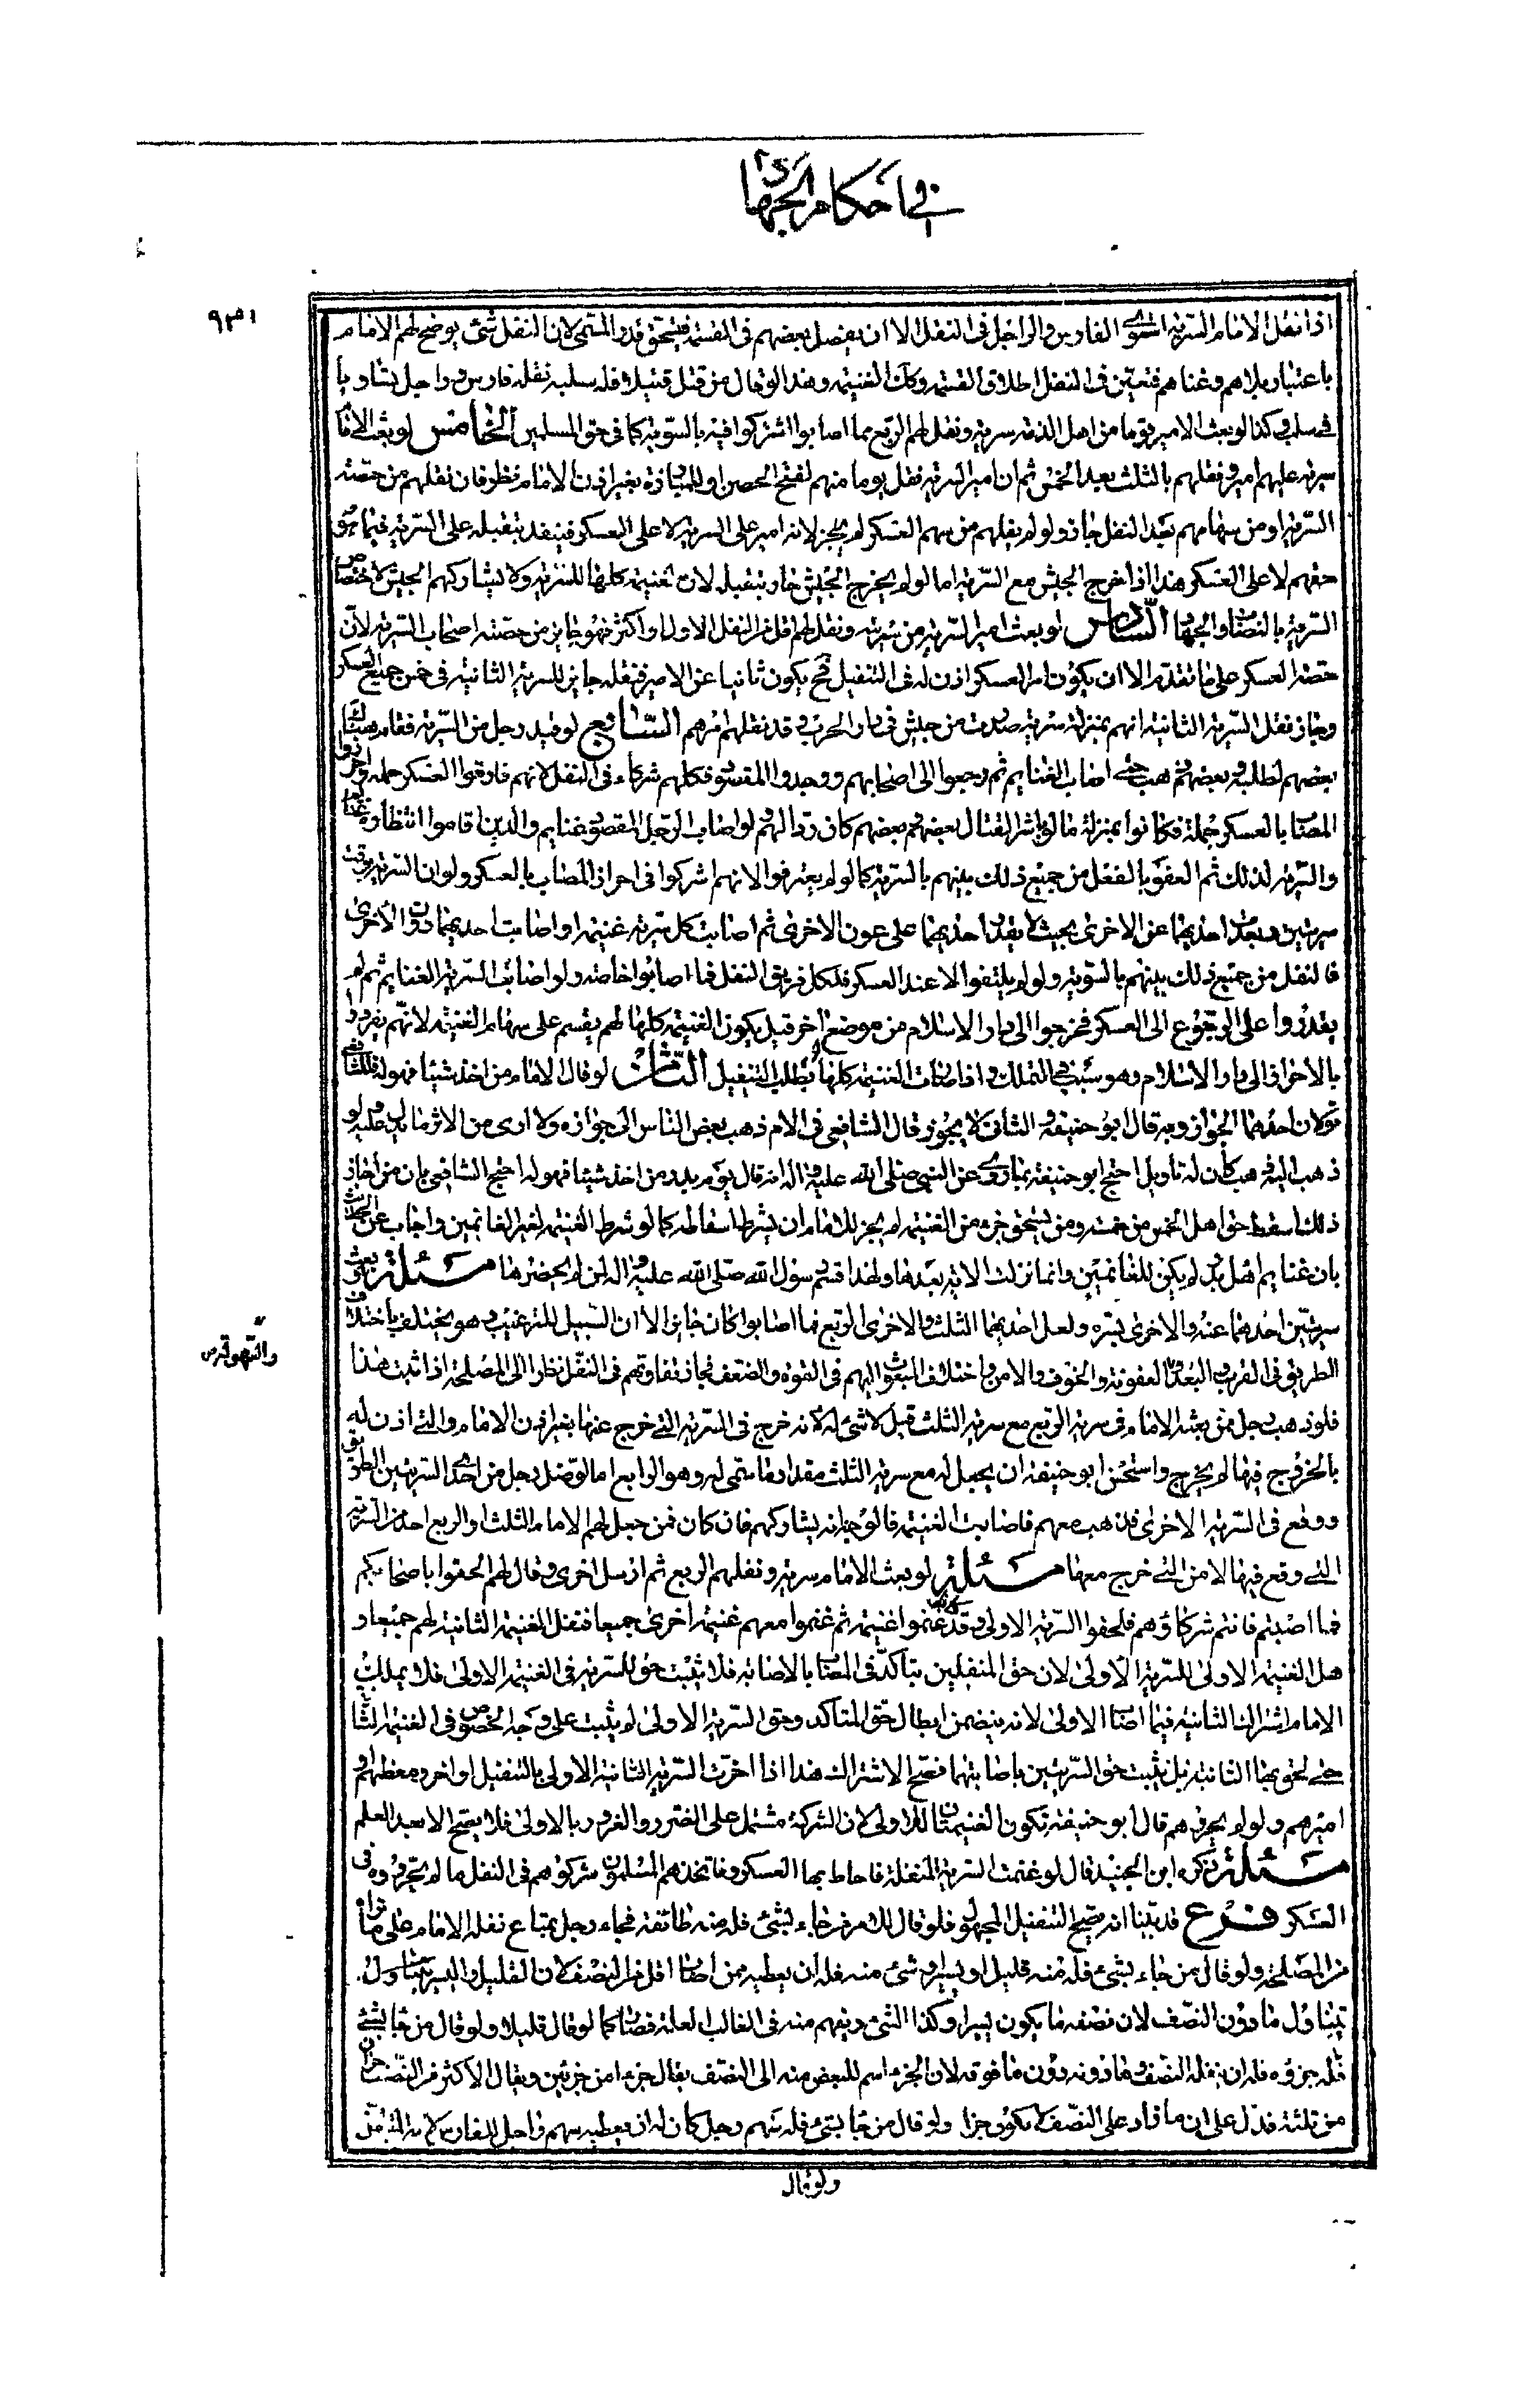 في احكام الجهاد
٩٣١
اذا نفل الامام السرية استوى الفارس والراجل في النفل الا ان يفضل بعضهم في القسمة فيستحق قدر المسمى لان النفل شئ يوضح لهم الامام
باعتبار بلاهم وغناهم فتعين في النفل اطلاق القسمة وكان الغنيمة وهذا لو قال من قتل قتيلا فله سلبه نفله فارس وراجل يشاويا
في سلبه وكذا لو بعث الامير قوما من اهل الذمة سرية ونفل لهم الربع مما اصابوا اشتركوا فيه بالسوية كما في حق المسلمين الخامس لو بعث الامام
سرية عليهم امير ونفلهم بالثلث بعد الخمس ثم ان امير السرية نفل يوما منهم لفتح الحصن او للمبارزة بغير اذن الامام نظر فان نفلهم من حصته
السرية او من سهامهم بعد النفل جاز ولو لم ينفلهم من سهم العسكر لم يجز لانه امير على السرية لا على العسكر فينفذ بتنفيله على السرية فيما هو
حقهم لا على العسكر هذا اذا خرج الجيش مع السرية اما لو لم يخرج الجيش جاز بتنفيله لان الغنيمة كلها للسرية ولا يشاركهم الجيش لاختصاص
السرية بالنصاب والجهاد السادس لو بعث امير السرية من سريته ونفل لهم اقل من النفل الاول او اكثر فهو جايز من حصته اصحاب السرية لان
حصة العسكر على ما تقدم الا ان يكون امير العسكر اذن له في التنفيل فح يكون نائبا عن الامير فنفله جايز للسرية الثانية في خمس جميع العسكر
وجاز نفل السرية الثانية انهم بمنزلة سرية صدرت من جيش في دار الحرب قد نفلهم اميرهم السابع لو فقد رجل من السرية فقام هناك
بعضهم لطلبه وبعضهم ذهب حتى اصاب الغنايم ثم رجعوا الى اصحابهم ووجدوا المفقود فكلهم شركاء في النفل لانهم فارقوا العسكر جملة واحرزوا
المصاب بالعسكر جملة فكانوا بمنزلة ما لو باشر القتال بعضهم وبعضهم كان ردا لهم ولو اصاب الرجل المفقود غنايم والذين اقاموا انتظاره غنايم
والسرية لذلك ثم التقوا بالنفل من جميع ذلك بينهم بالسرية كما لو لم يفترقوا لانهم اشتركوا في احراز المصاب بالعسكر ولو ان السرية تفرقت
سريتين وبعد احديهما عن الاخرى بحيث لا يقدر احديهما على عون الاخرى ثم اصابت كل سرية غنيمة او اصابت احديهما دون الاخرى
فالنفل من جميع ذلك بينهم بالسوية ولو لم يلتقوا الا عند العسكر فلكل فريق النفل فيما اصابوا خاصة ولو اصابت السرية الغنايم ثم لم
يقدروا على الرجوع الى العسكر فخرجوا الى دار الاسلام من موضع اخر قيل يكون الغنيمة كلها لهم يقسم على سهام الغنيمة لانهم تفردوا
بالاحراز الى دار الاسلام وهو سبب في التملك واذا صارت الغنيمة كلها لهم بطل التنفيل الثامن لو قال الامام من اخذ شيئا فهو له فللشافعي
قولان احدهما الجواز وبه قال ابو حنيفة والثاني لا يجوز قال الشافعي في الام ذهب بعض الناس الى جوازه ولا ارى من الاثر ما يدل عليه ولو
ذهب اليه ذهب كان له تاويل احتج ابو حنيفة بما روي عن النبي صلى الله عليه واله انه قال يوم بدر من اخذ شيئا فهو له احتج الشافعي بان من اجاز
ذلك اسقط حق اهل الخمس من خمسه ومن يستحق جزء من الغنيمة لم يجز للامام ان يشرط اسقاطه كما لو شرط الغنيمة لغير الغانمين واجاب عن الحديث
بان غنايم اهل بدر لم يكن للغانمين وانما نزلت الاية بعدها ولهذا قسم رسول الله صلى الله عليه واله لمن لم يحضرها مسئلة لو بعث
سريتين احدهما عنه والاخرى يسره ولعل احديهما الثلث والاخرى الربع فما اصابوا كان جايزا لان السبيل للترغيب وهو يختلف باختلاف
الطريق في القرب والبعد والصعوبة والخوف والامن واختلاف المبعوث اليهم في القوة والضعف فجاز تفاوتهم في النفل نظرا الى المصلحة اذا ثبت هذا
فلو ذهب رجل ممن بعثه الامام في سرية الربع مع سرية الثلث قيل لا شئ له لانه خرج في السرية التي خرج عنها بغير اذن الامام والتي اذن له
بالخروج فيها لم يخرج واستحسن ابو حنيفة ان يجعل له مع سرية الثلث مقدار ما سمى له وهو الرابع اما لو ضل رجل من احدى السريتين الطريق
ووقع في السرية الاخرى فذهب معهم فاصابت الغنيمة فالوجه انه يشاركهم فان كان فمن جعل لهم الامام الثلث او الربع احد من السرية
التي وقع فيها لا من التي خرج معها مسئلة لو بعث الامام سرية ونفلهم الربع ثم ارسل اخرى وقال لهم الحقوا باصحابكم
فما اصبتم فانتم شركاؤهم فلحقوا السرية الاولى وقد غنموا غنيمة ثم غنموا معهم غنيمة اخرى جميعا فنفل الغنيمة الثانية لهم جميعا و
هل الغنيمة الاولى للسرية الاولى لان حق المنفلين يتاكد في المصاب بالاصابة فلا يثبت حق للسرية في الغنيمة الاولى فلا يملك
الامام اشتراك الثانية فيما اصاب الاولى لانه يتضمن ابطال حق المتاكد وحق السرية الاولى لم يثبت على وجه الخصوص في الغنيمة الثانية
حتى لحق بها الثانية بل يثبت حق السريتين باصابتهما فصح الاشتراك هذا اذا اخبرت السرية الثانية الاولى بالتنفيل او اخبر معظمهم او
اميرهم ولو لم يخبرهم قال ابو حنيفة تكون الغنيمتان للاولى لان الشركة مشتمل على الضرر والغرور بالاولى فلا يصح الا بعد العلم
مسئلة ذكره ابن الجنيد قال لو غنمت السرية المنفلة فاحاط بها العسكر وفاتجدهم المسلمون شركوهم في النفل ما لم يحرزوه في
العسكر فرع قد بينا انه يصح التنفيل المجهول فلو قال الامام من جاء بشئ فله منه طائفة فجاء رجل بمتاع نفله الامام على ما يراه
من المصلحة ولو قال من جاء بشئ فله منه قليل او يسير او شئ منه فله ان يعطيه ممن اصاب اقل من النصف لان القليل واليسير يتناول
يتناول ما دون النصف لان نصفه ما يكون يسيرا وكذا الشئ ويفهم منه في الغالب لعله فصار كما لو قال قليلا ولو قال من جاء بشئ
فله جزؤه فله ان ينفله النصف وما دونه دون ما فوقه لان الجزء اسم للبعض منه الى النصف يقال جزء من جزئين ويقال الاكثر من النصف جزان
من ثلثة فدل على ان ما زاد على النصف لا يكون جزا ولو قال من جا بشئ فله سهم رجل كان له ان يعطيه سهم راجل لا الفارس لانه المتيقن
والسهولة ص
ولو قال